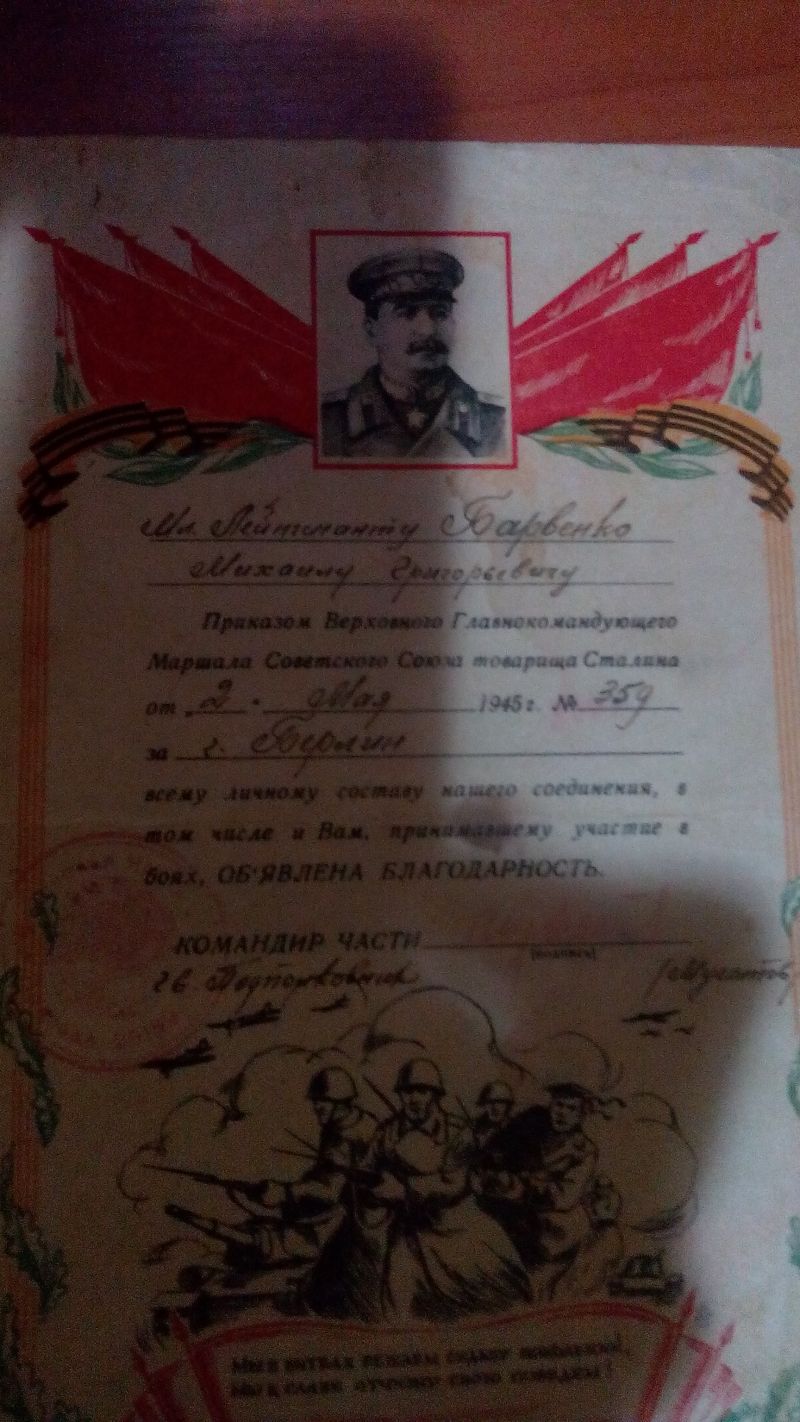 Мл. Лейтенанту Барвенко
Михаилу Григорьевичу
Приказом Верховного Главнокомандующего
Маршала Советского Союза товарища Сталина
от „2" мая 1945 г. № 359
за г. Берлин
всему личному составу нашего соединения, в
том числе и Вам, принимавшему участие в
боях, ОБ'ЯВЛЕНА БЛАГОДАРНОСТЬ.
КОМАНДИР ЧАСТИ
(подпись)
гв. Подполковник
МЫ В БИТВАХ РЕШАЕМ СУДЬБУ ПОКОЛЕНИЙ,
МЫ К СЛАВЕ ОТЧИЗНУ СВОЮ ПОВЕДЕМ!